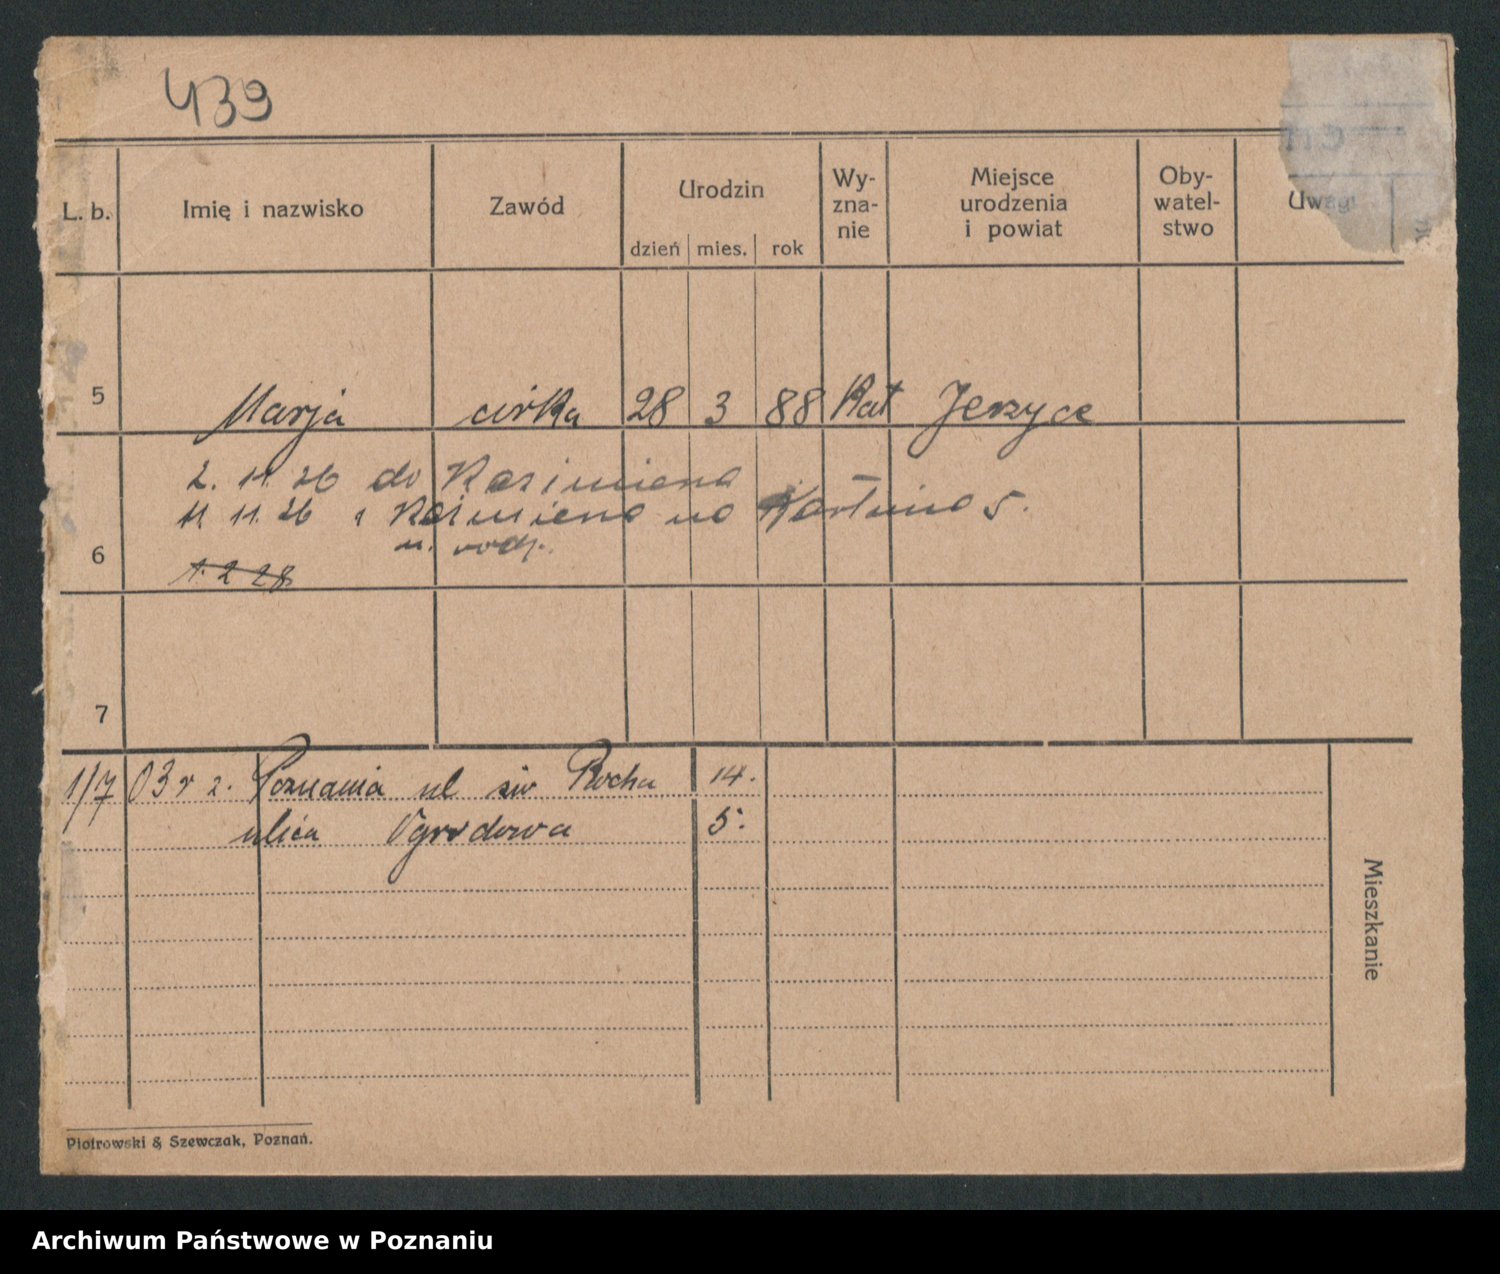 439
L. b.
Imię i nazwisko
Zawód
Urodzin
dzień mies. rok
Wy-
zna-
nie
Miejsce
urodzenia
i powiat
Oby-
watel-
stwo
Uwagi
5 Marja córka 28 3 88 Kat Jerzyce
2. 11. 26 do Kazimierza
11 11. 26 z Kazimierza na 5.
u. rodz.
6
1. 2 28
7
1/7 03 r z. Poznania ul św Rocha 14.
ulica Ogrodowa 5.
Mieszkanie
Piotrowski & Szewczak, Poznań.
Archiwum Państwowe w Poznaniu